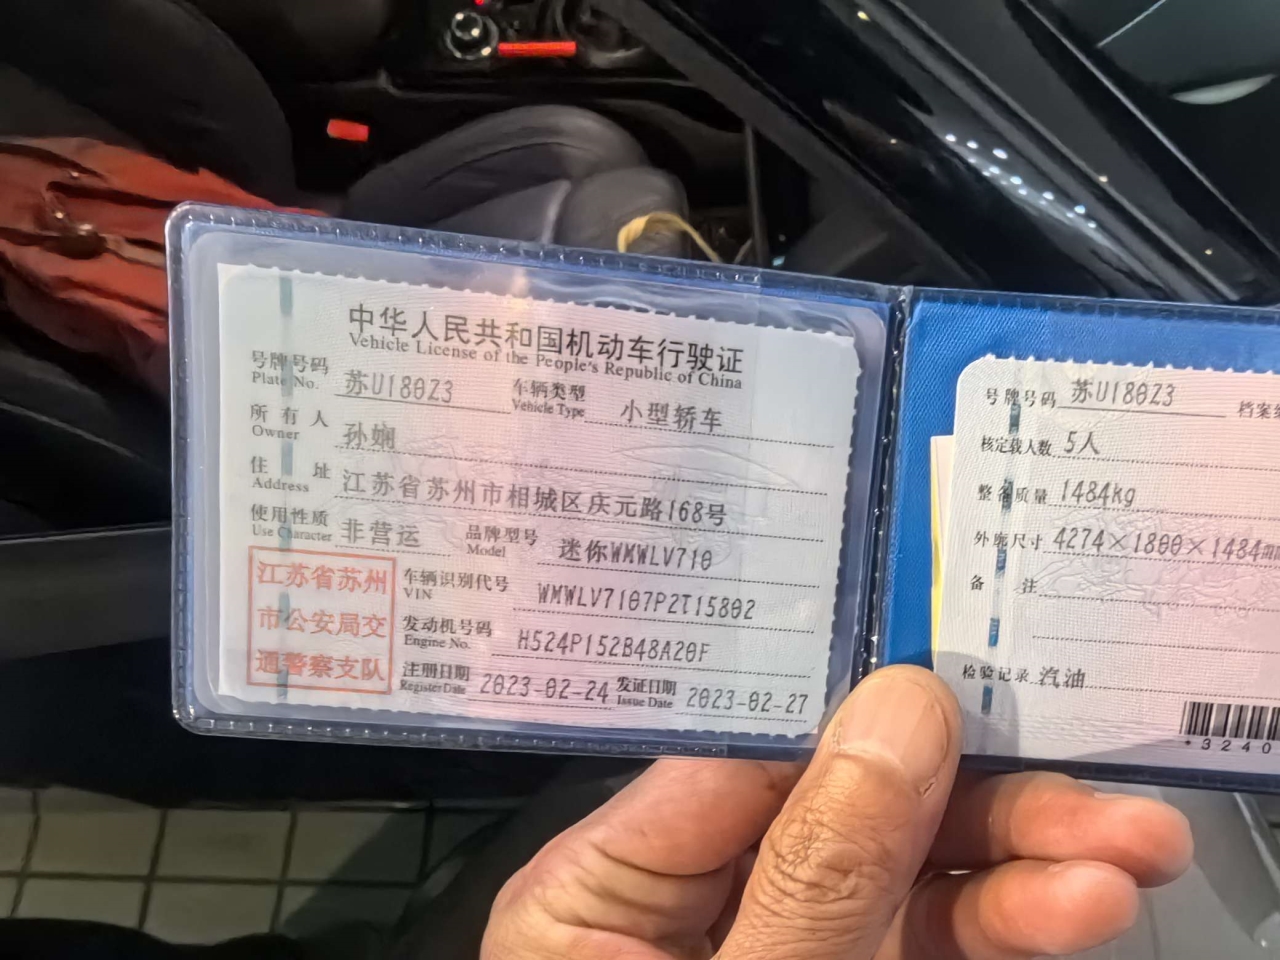 中华人民共和国机动车行驶证
Vehicle License of the People's Republic of China
号牌号码 苏U180Z3 车辆类型 小型轿车
Plate No. Vehicle Type
所有人 孙娴
Owner
住址 江苏省苏州市相城区庆元路168号
Address
使用性质 非营运 品牌型号 迷你WMWLV710
Use Character Model
江苏省苏州
市公安局交
通警察支队
车辆识别代号 WMWLV7107P2T15802
VIN
发动机号码 H524P152B48A20F
Engine No.
注册日期 2023-02-24 发证日期 2023-02-27
Register Date Issue Date
号牌号码 苏U180Z3 档案
核定载人数 5人
整备质量 1484kg
外廓尺寸 4274×1800×1484mm
备注
检验记录 汽油
*3240